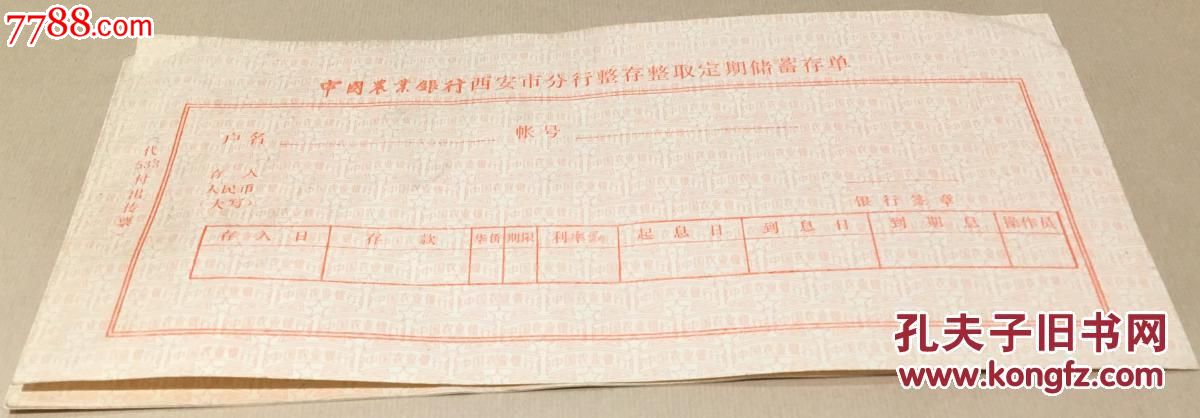 7788.com
中國農業銀行西安市分行整存整取定期储蓄存单
户名 帐号
(代533付出传票)
存入
人民币
(大写)
银行签章
存入日 存款 华侨 期限 利率% 起息日 到息日 到期息 操作员
孔夫子旧书网
www.kongfz.com